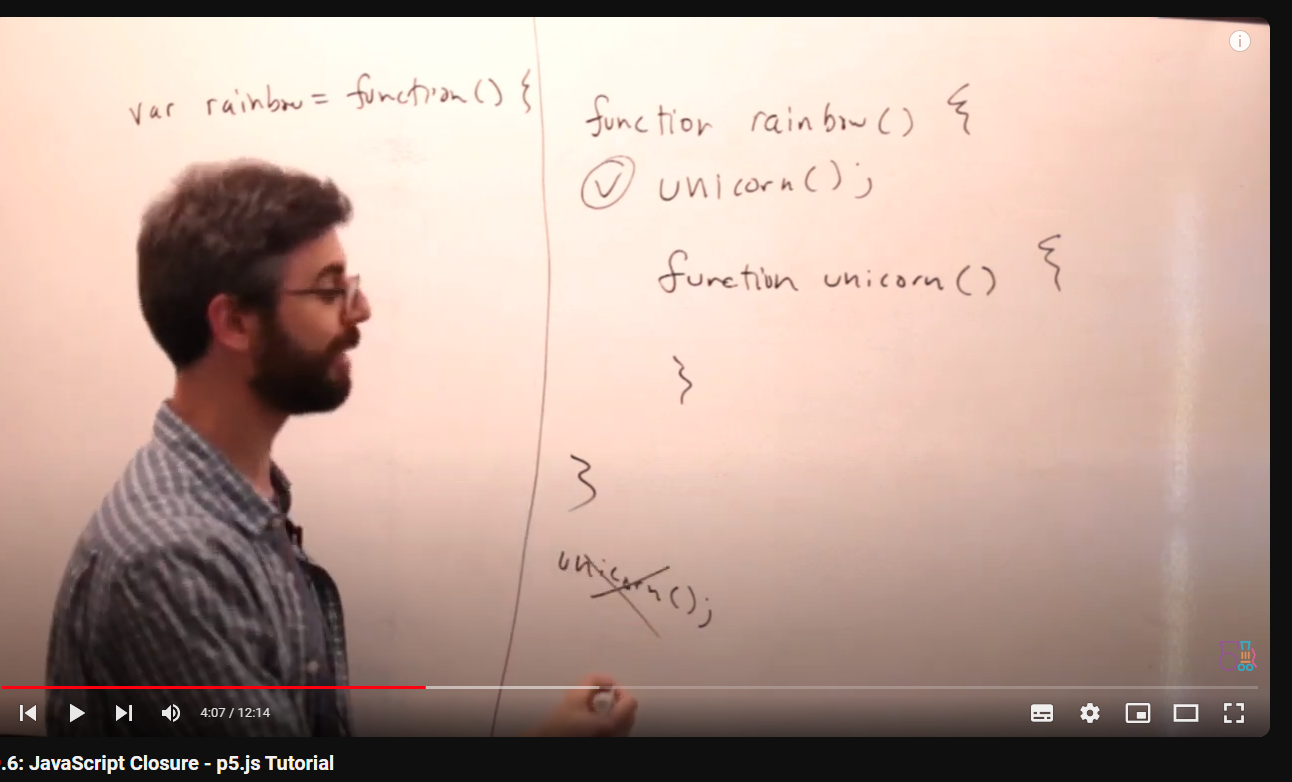 var rainbow = function() {
function rainbow() {
unicorn();
function unicorn() {
}
}
unicorn();
4:07 / 12:14
.6: JavaScript Closure - p5.js Tutorial